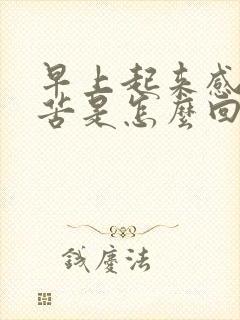 早上起来感
苦是怎麼回
鐵慶法